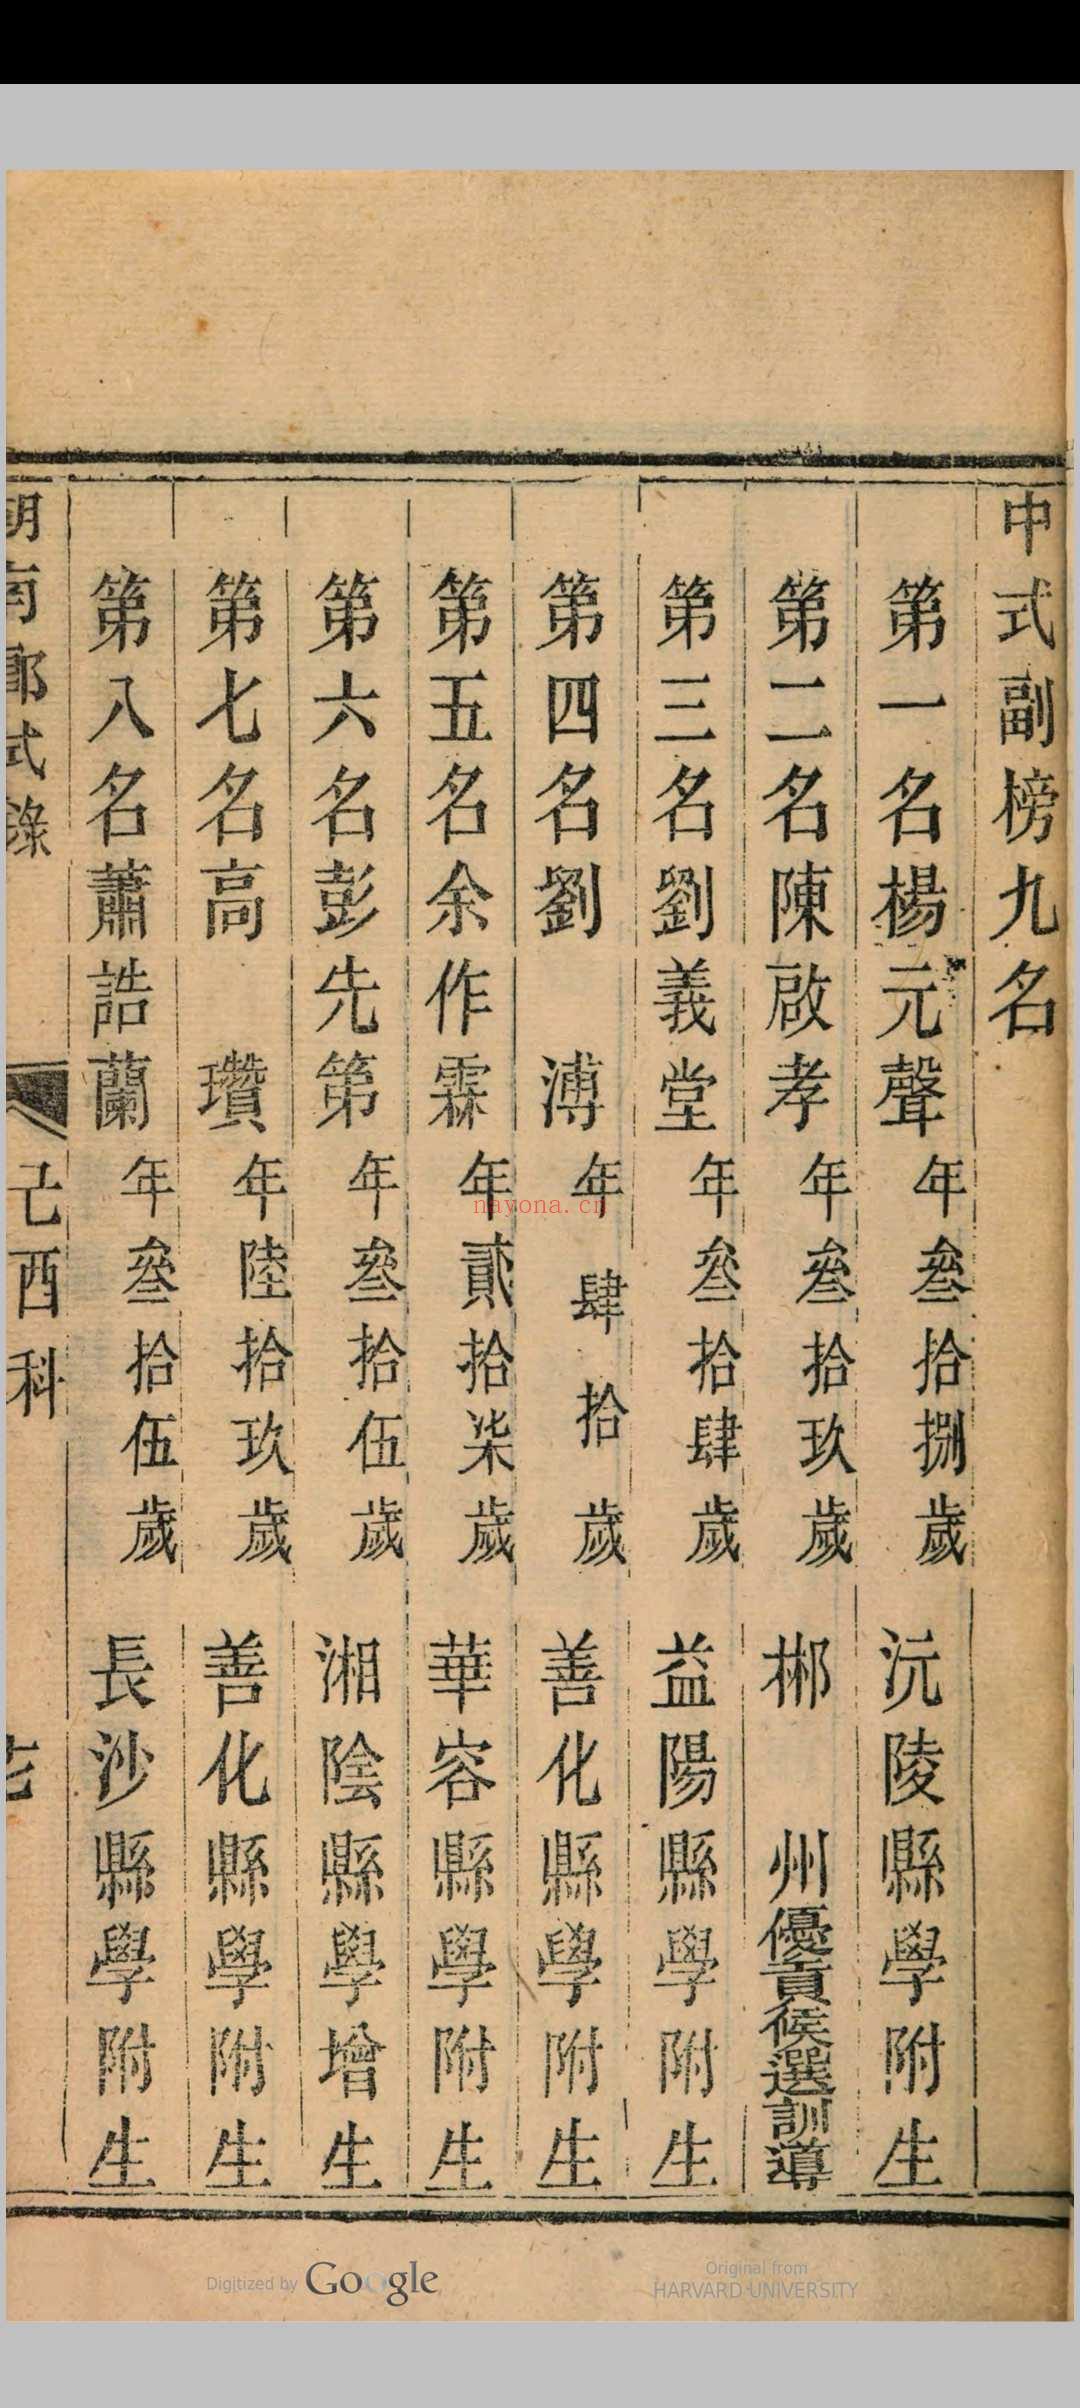 中式副榜九名
第一名楊元聲 年叁拾捌歲 沅陵縣學附生
第二名陳啟孝 年叁拾玖歲 郴州優貢候選訓導
第三名劉義堂 年叁拾肆歲 益陽縣學附生
第四名劉溥 年肆拾歲 善化縣學附生
第五名余作霖 年貳拾柒歲 華容縣學附生
第六名彭先第 年叁拾伍歲 湘陰縣學增生
第七名高瓚 年陸拾玖歲 善化縣學附生
第八名蕭誥蘭 年叁拾伍歲 長沙縣學附生
湖南鄉試錄 己酉科
nayona.cn
Digitized by Google
Original from
HARVARD UNIVERSITY